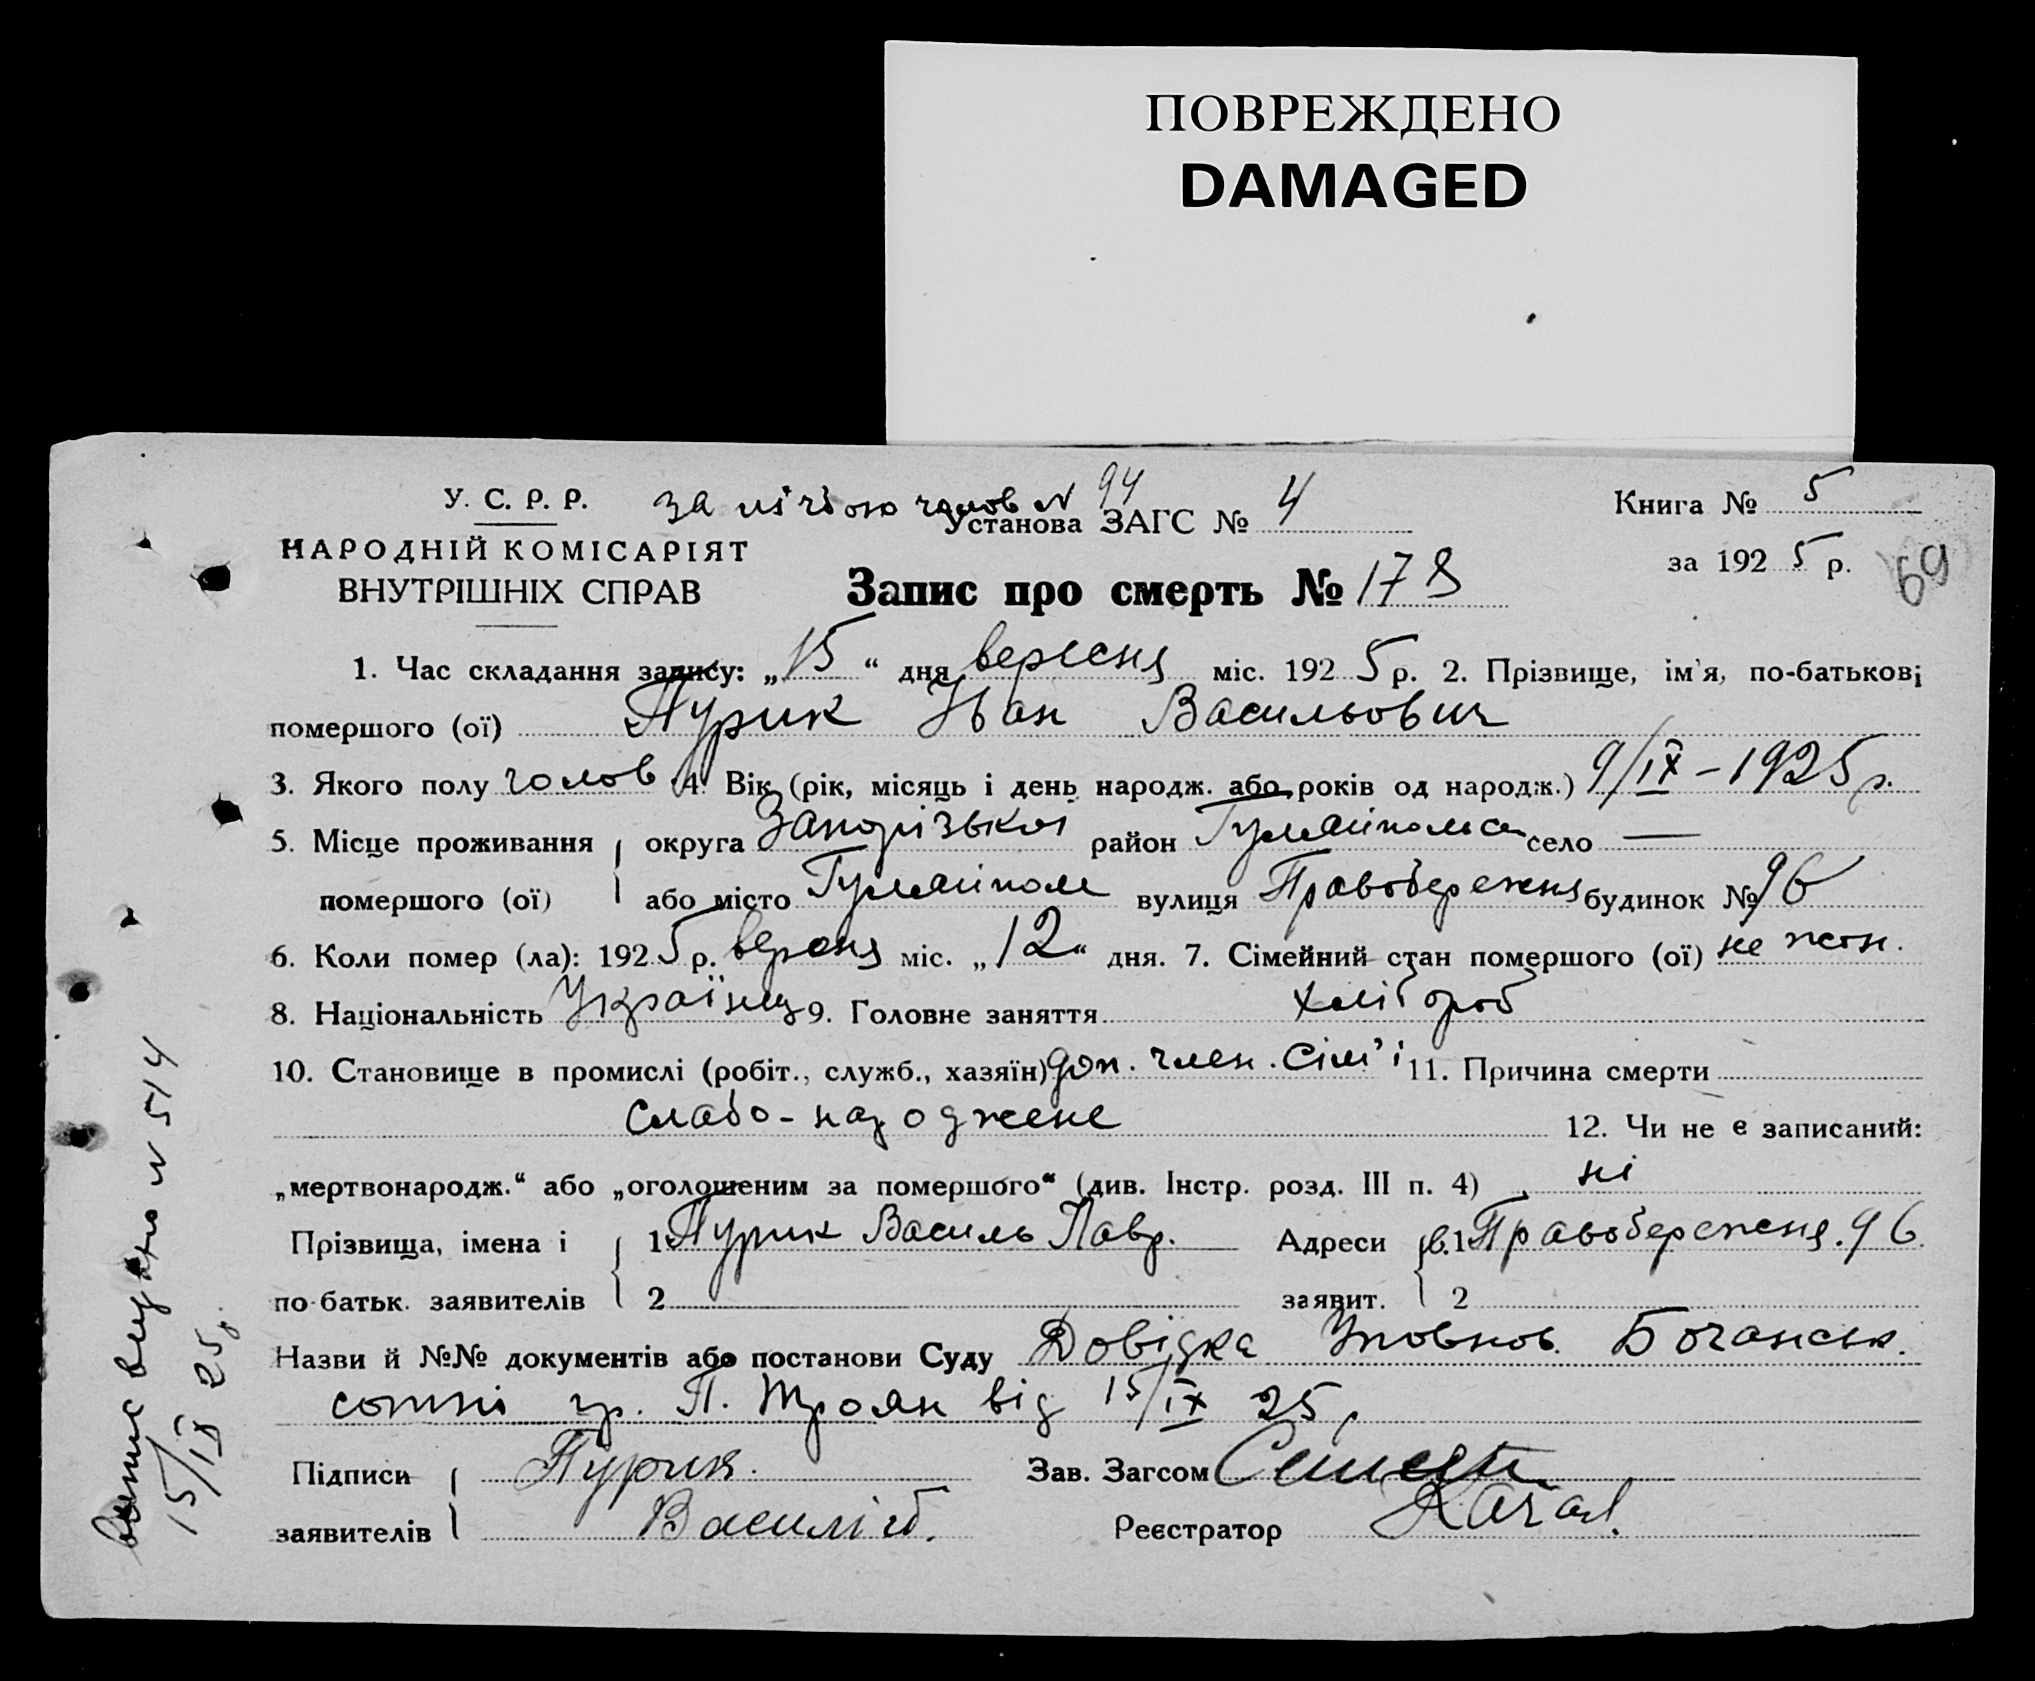 ПОВРЕЖДЕНО
DAMAGED
У. С. Р. Р.
НАРОДНІЙ КОМІСАРІЯТ
ВНУТРІШНІХ СПРАВ
за лічбою чолов № 94
Установа ЗАГС № 4
Книга № 5
за 192 5 р.
69
Запис про смерть № 178
1. Час складання запису: „15“ дня вересня міс. 192 5 р. 2. Прізвище, ім'я, по-батькові
помершого (ої) Пурик Іван Васильович
3. Якого полу чолов 4. Вік (рік, місяць і день народж. або років од народж.) 9/IX – 1925 р.
5. Місце проживання округа Запорізької район Гуляйпольськ село —
помершого (ої) або місто Гуляйполе вулиця Правобережня будинок № 96
6. Коли помер (ла): 192 5 р. вересня міс. „12“ дня. 7. Сімейний стан помершого (ої) не жон.
8. Національність Українец 9. Головне заняття хлібороб
10. Становище в промислі (робіт., служб., хазяїн) доп. член. сім'ї 11. Причина смерти
слабо-народжене 12. Чи не є записаний:
„мертвонародж.“ або „оголошеним за помершого“ (див. Інстр. розд. III п. 4) ні
Прізвища, імена і 1 Пурик Василь Лавр. Адреси в. 1 Правобережня. 96
по-батьк. заявителів 2 заявит. 2
Назви й №№ документів або постанови Суду Довідка Уповнов. Бочанськ.
сотні гр. П. Троян від 15/IX 25 р
Підписи Пурик. Зав. Загсом
заявителів Реєстратор
15/IX 25 р. № 514